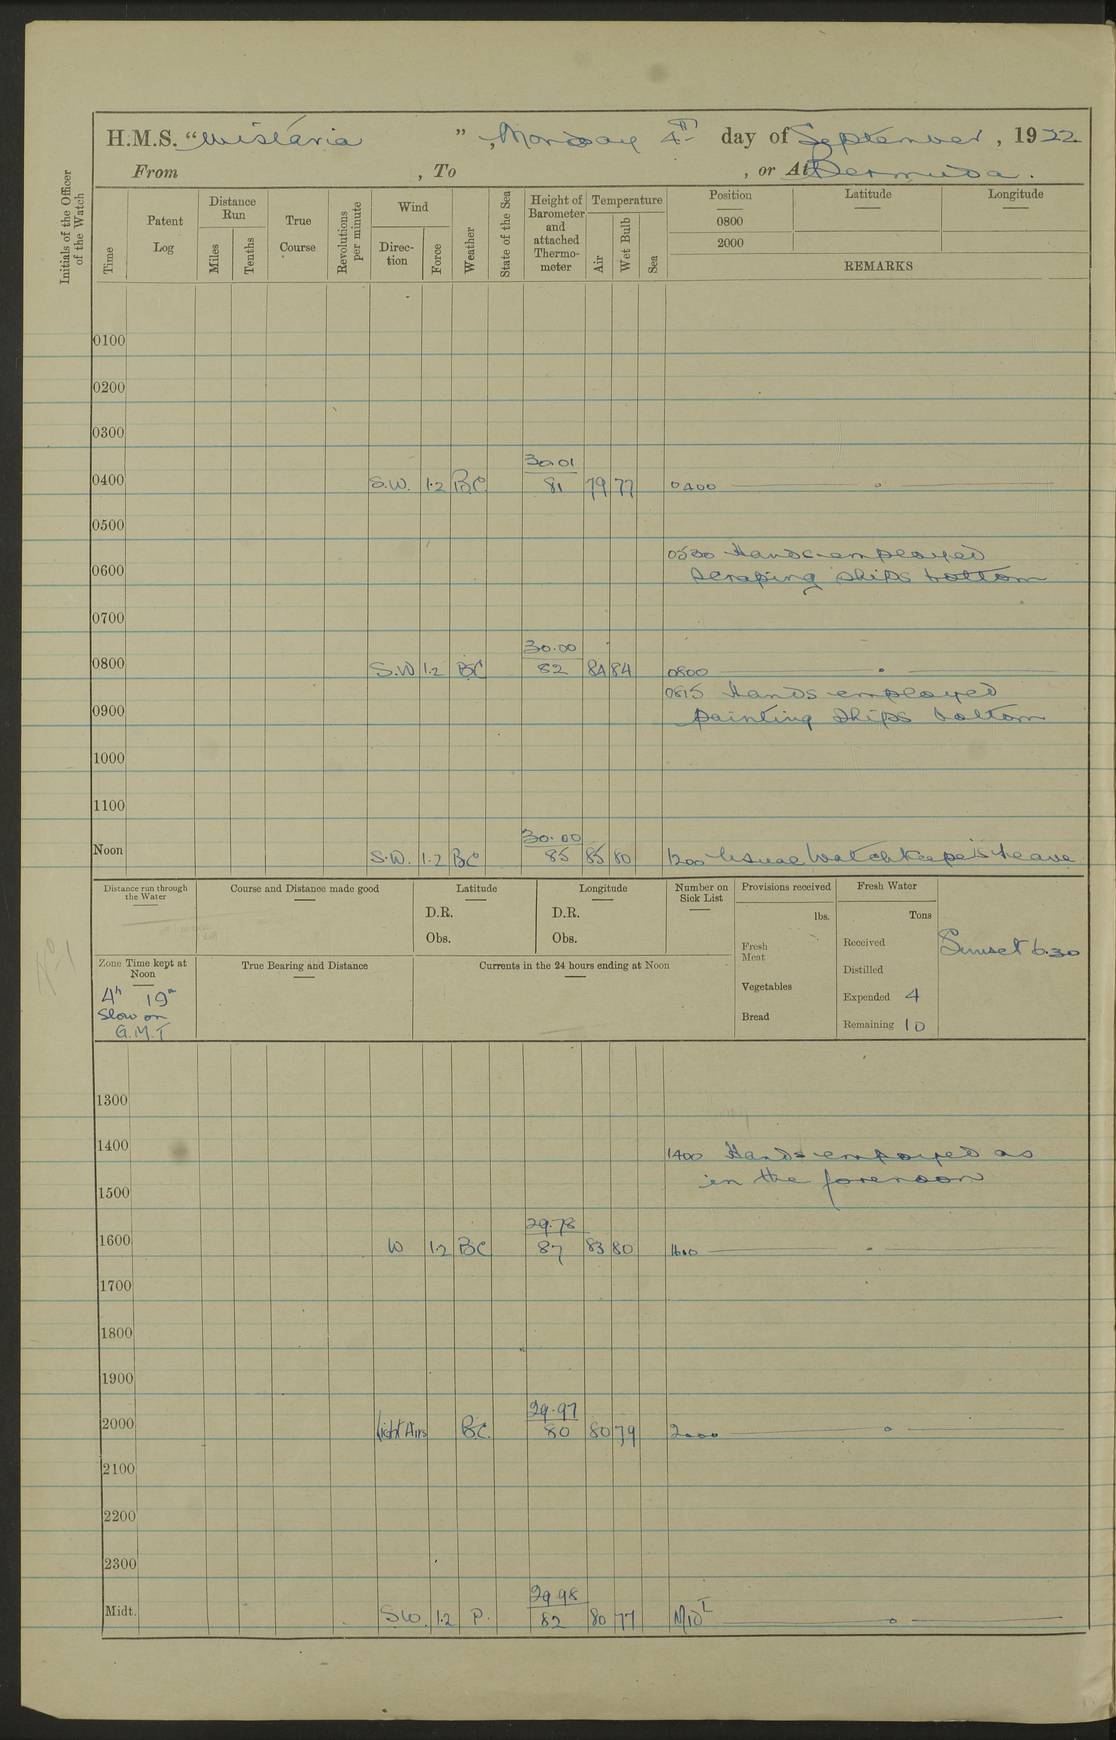 H.M.S. "Wistaria", Monday 4th day of September, 1922
From , To , or At Bermuda.
Initials of the Officer of the Watch
Time
Patent Log
Distance Run
Miles
Tenths
True Course
Revolutions per minute
Wind
Direc-tion
Force
Weather
State of the Sea
Height of Barometer and attached Thermo-meter
Temperature
Air
Wet Bulb
Sea
Position
Latitude
Longitude
0800
2000
REMARKS
0100
0200
0300
30.01
0400 S.W. 1.2 BC 81 79 77 0400
0500
0530 Hands employed
0600 scraping ships bottom
0700
30.00
0800 S.W 1.2 BC 82 84 84 0800
0815 Hands employed
0900 painting ships bottom
1000
1100
30.00
Noon S.W. 1.2 BC 85 85 80 1200 Usual Watchkeepers leave
Distance run through the Water
Course and Distance made good
Latitude
D.R.
Obs.
Longitude
D.R.
Obs.
Number on Sick List
Provisions received
lbs.
Fresh Meat
Vegetables
Bread
Fresh Water
Tons
Received
Distilled
Expended 4
Remaining 10
Sunset 6.30
Zone Time kept at Noon
4h 19m
Slow on
G.M.T
True Bearing and Distance
Currents in the 24 hours ending at Noon
1300
1400 1400 Hands employed as
in the forenoon
1500
29.78
1600 W 1.2 BC 87 83 80 1600
1700
1800
1900
29.97
2000 Light Airs BC. 80 80 79 2000
2100
2200
2300
29.98
Midt. SW. 1.2 P. 82 80 77 MidT